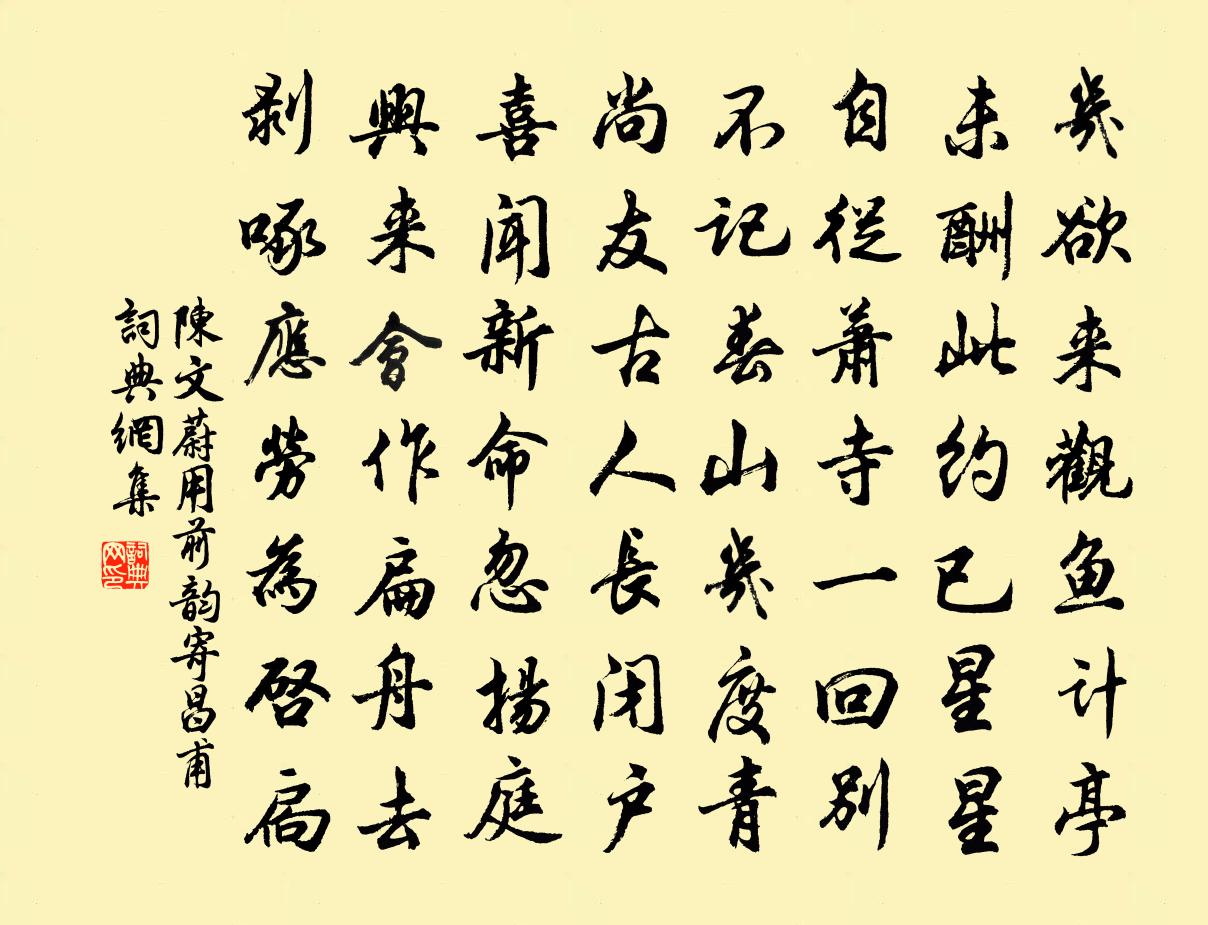 幾欲来觀魚計亭
未酬此約已星星
自從蕭寺一回別
不記春山幾度青
尚友古人長闭户
喜聞新命忽揚庭
興来會作扁舟去
剥啄應勞為啓扃
陳文蔚用前韵寄昌甫
詞典網集
詞典
网印